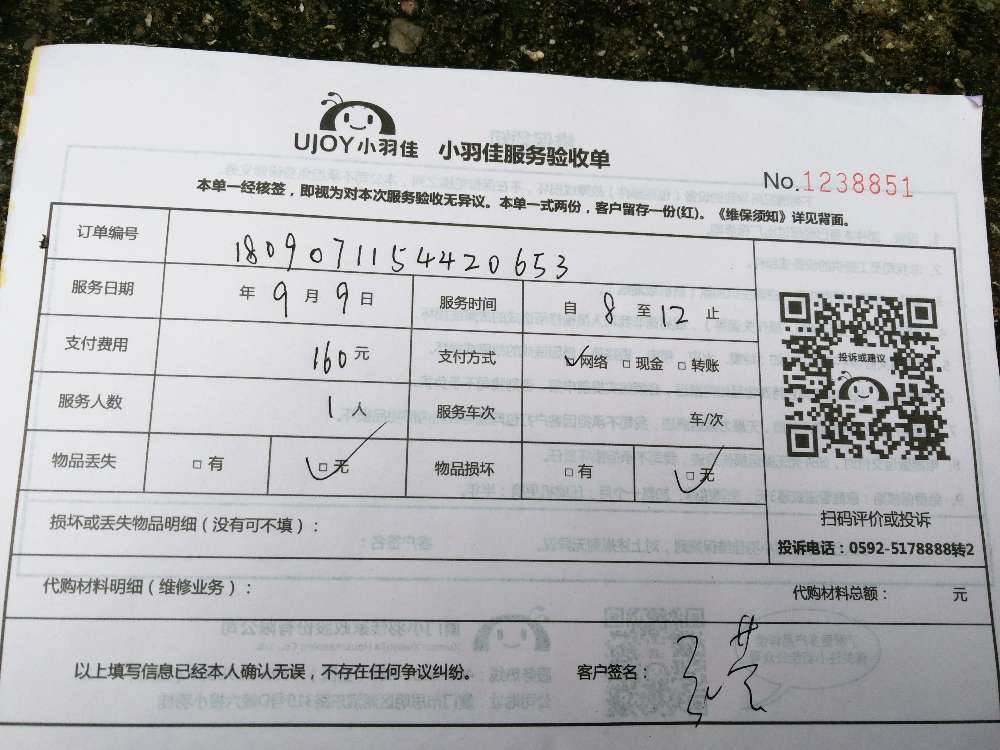 UJOY小羽佳 小羽佳服务验收单
No.1238851
本单一经核签，即视为对本次服务验收无异议。本单一式两份，客户留存一份(红)。《维保须知》详见背面。
订单编号 1809071154420653
服务日期 年 9 月 9 日 服务时间 自 8 至 12 止
支付费用 160元 支付方式 ☑网络 □现金 □转账
投诉或建议
服务人数 1人 服务车次 车/次
物品丢失 □有 ☑无 物品损坏 □有 ☑无
扫码评价或投诉
投诉电话：0592-5178888转2
损坏或丢失物品明细（没有可不填）：
代购材料明细（维修业务）： 代购材料总额： 元
以上填写信息已经本人确认无误，不存在任何争议纠纷。 客户签名：